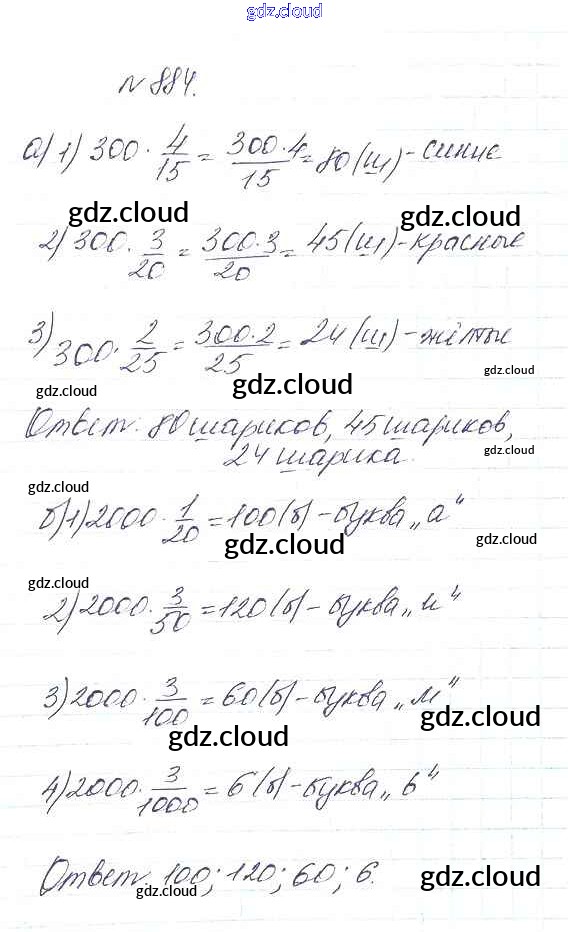 gdz.cloud
№ 884.
а) 1) 300 · 4/15 = 300·4/15 = 80 (ш) - синие
gdz.cloud gdz.cloud
2) 300 · 3/20 = 300·3/20 = 45 (ш) - красные
3) 300 · 2/25 = 300·2/25 = 24 (ш) - жёлтые
gdz.cloud gdz.cloud gdz.cloud
Ответ: 80 шариков, 45 шариков,
24 шарика.
gdz.cloud
gdz.cloud
б) 1) 2000 · 1/20 = 100 (б) - буква „а“
gdz.cloud gdz.cloud
gdz.cloud
2) 2000 · 3/50 = 120 (б) - буква „и“
3) 2000 · 3/100 = 60 (б) - буква „м“
gdz.cloud gdz.cloud
4) 2000 · 3/1000 = 6 (б) - буква „ь“
Ответ: 100; 120; 60; 6.
gdz.cloud gdz.cloud